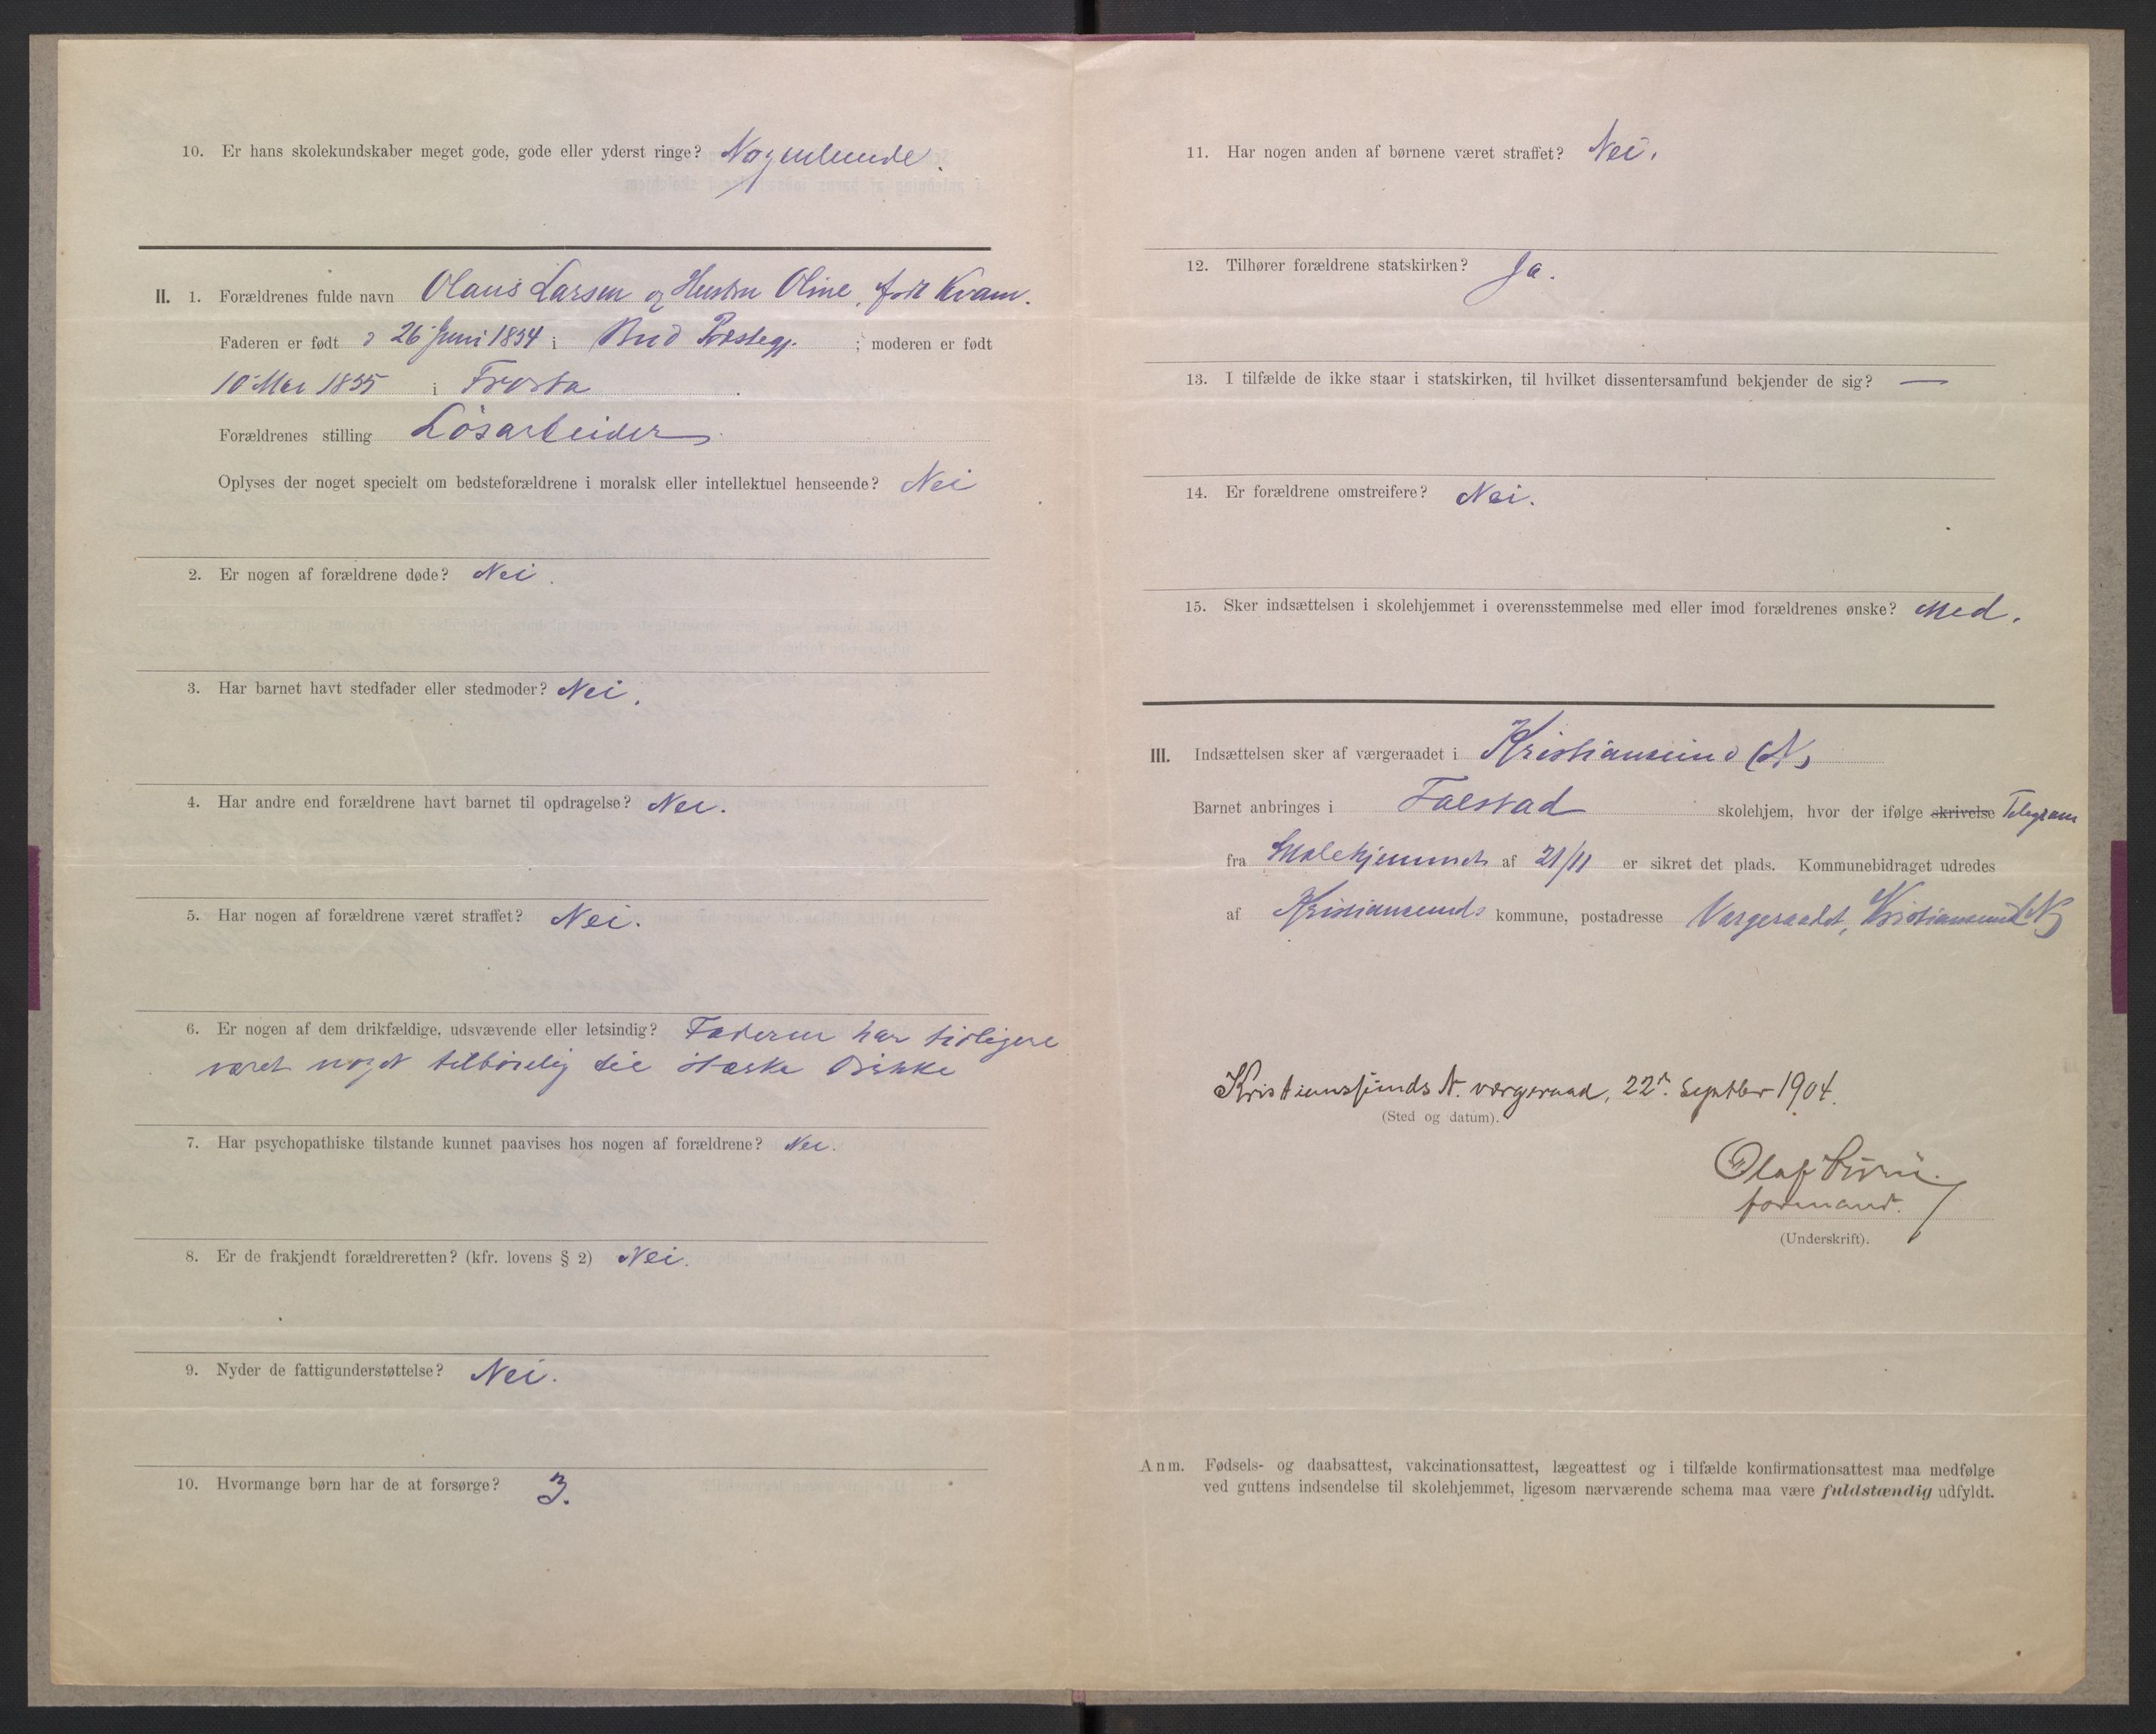 10. Er hans skolekundskaber meget gode, gode eller yderst ringe? Nogenlunde.
II. 1. Forældrenes fulde navn Olaus Larsen og Hustru Oline, født Kvam.
Faderen er født d 26 Juni 1854 i Bud Præstegj. ; moderen er født
10 Mai 1855 i Frosta
Forældrenes stilling Lösarbeider
Oplyses der noget specielt om bedsteforældrene i moralsk eller intellektuel henseende? Nei
2. Er nogen af forældrene døde? Nei.
3. Har barnet havt stedfader eller stedmoder? Nei.
4. Har andre end forældrene havt barnet til opdragelse? Nei.
5. Har nogen af forældrene været straffet? Nei.
6. Er nogen af dem drikfældige, udsvævende eller letsindig? Faderen har tidligere
været noget tilbøielig til stærke Drikke
7. Har psychopathiske tilstande kunnet paavises hos nogen af forældrene? Nei.
8. Er de frakjendt forældreretten? (kfr. lovens § 2) Nei.
9. Nyder de fattigunderstøttelse? Nei.
10. Hvormange børn har de at forsørge? 3.
11. Har nogen anden af børnene været straffet? Nei.
12. Tilhører forældrene statskirken? Ja.
13. I tilfælde de ikke staar i statskirken, til hvilket dissentersamfund bekjender de sig? —
14. Er forældrene omstreifere? Nei.
15. Sker indsættelsen i skolehjemmet i overensstemmelse med eller imod forældrenes ønske? Med.
III. Indsættelsen sker af værgeraadet i Kristiansund (N)
Barnet anbringes i Falstad skolehjem, hvor der ifølge skrivelse Telegram
fra Skolehjemmet af 21/11 er sikret det plads. Kommunebidraget udredes
af Kristiansunds kommune, postadresse Værgeraadet, Kristiansund N
Kristianssunds N. værgeraad, 22de September 1904.
(Sted og datum).
Olaf
formand.
(Underskrift).
Anm. Fødsels- og daabsattest, vakcinationsattest, lægeattest og i tilfælde konfirmationsattest maa medfølge
ved guttens indsendelse til skolehjemmet, ligesom nærværende schema maa være fuldstændig udfyldt.